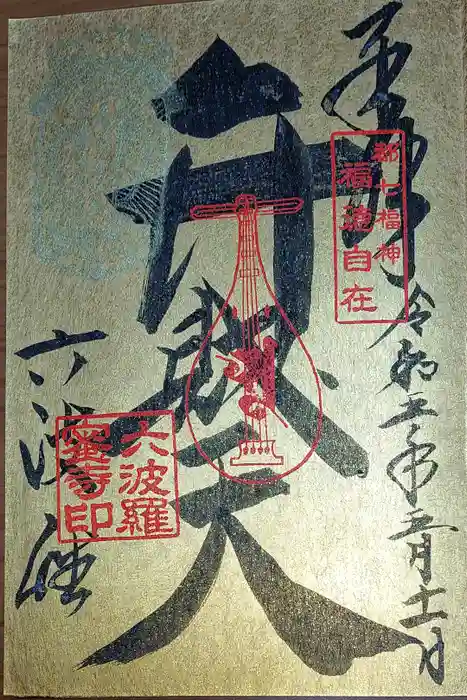 奉拝
都七福神
福徳自在
令和五年五月十一日
弁財天
六波羅
六波羅
蜜寺印